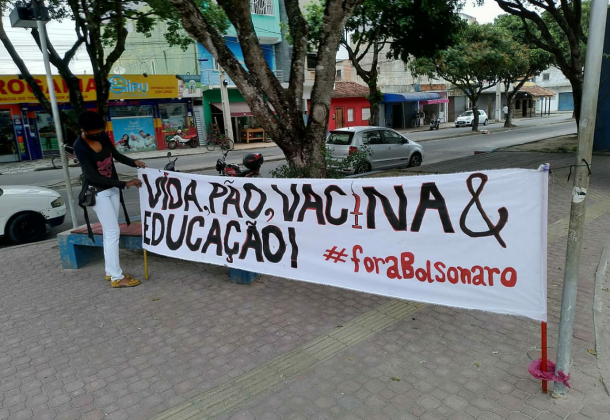 VIDA, PÃO, VACINA &
EDUCAÇÃO!
#foraBolsonaro